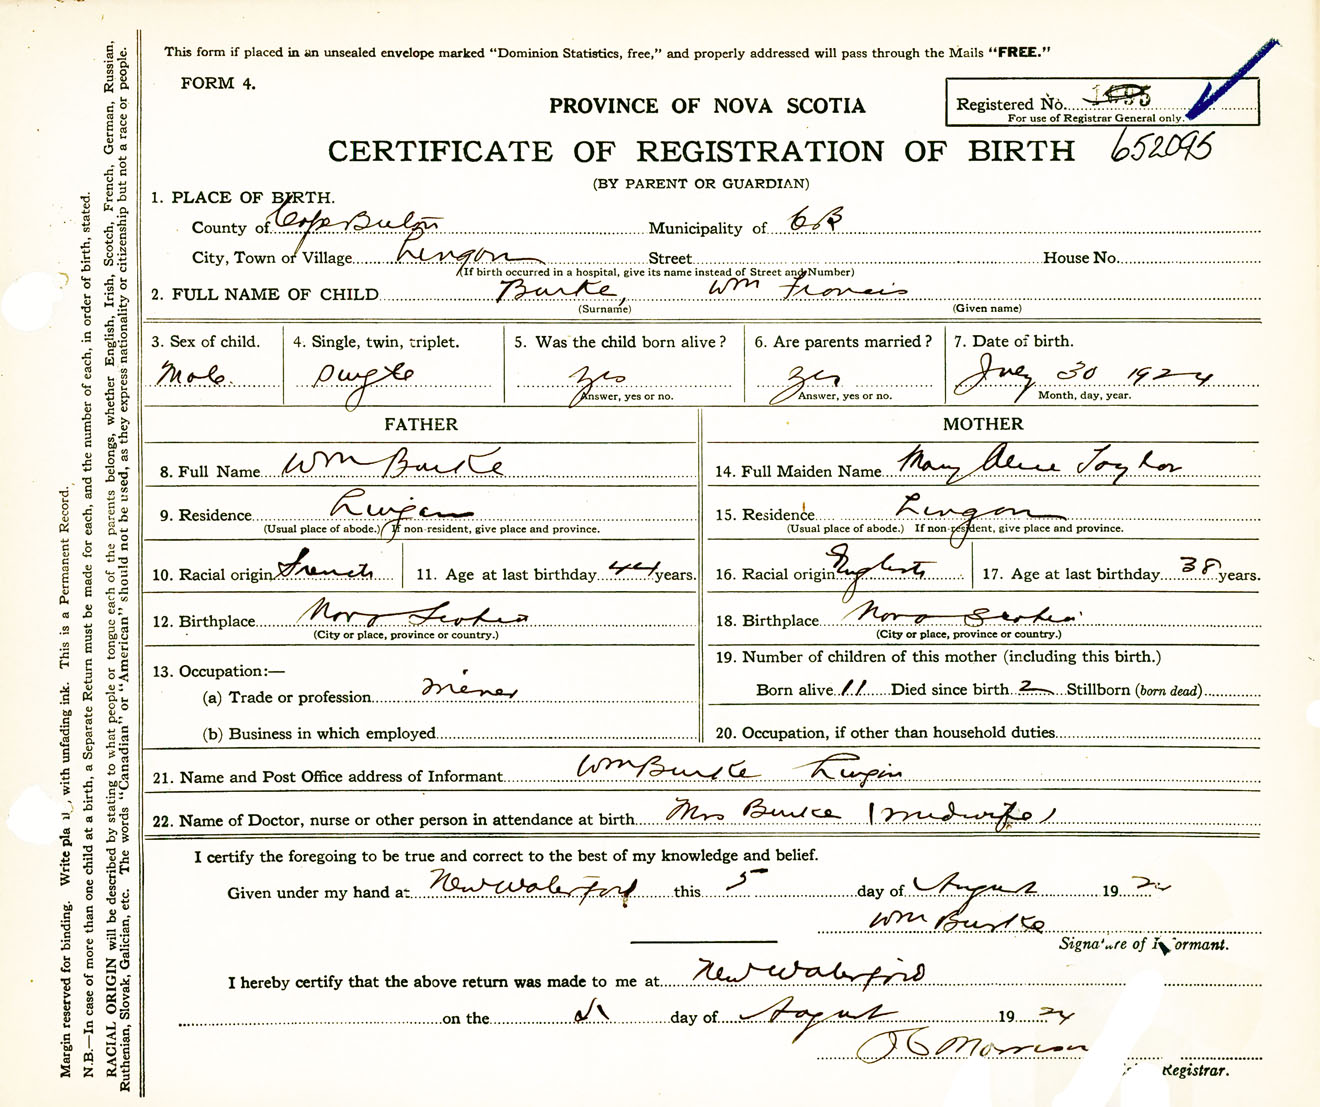 This form if placed in an unsealed envelope marked “Dominion Statistics, free,” and properly addressed will pass through the Mails “FREE.”
FORM 4.
PROVINCE OF NOVA SCOTIA
Registered No.
For use of Registrar General only.
CERTIFICATE OF REGISTRATION OF BIRTH 652095
(BY PARENT OR GUARDIAN)
1. PLACE OF BIRTH.
County of Cape Breton Municipality of CB
City, Town or Village Lingan Street House No.
(If birth occurred in a hospital, give its name instead of Street and Number)
2. FULL NAME OF CHILD Burke, Wm Francis
(Surname) (Given name)
3. Sex of child. 4. Single, twin, triplet. 5. Was the child born alive? 6. Are parents married? 7. Date of birth.
Male Single yes yes July 30 1924
Answer, yes or no. Answer, yes or no. Month, day, year.
FATHER MOTHER
8. Full Name Wm Burke 14. Full Maiden Name Mary Alice Taylor
9. Residence Lingan 15. Residence Lingan
(Usual place of abode.) If non-resident, give place and province. (Usual place of abode.) If non-resident, give place and province.
10. Racial origin French 11. Age at last birthday 44 years. 16. Racial origin English 17. Age at last birthday 38 years.
12. Birthplace Nova Scotia 18. Birthplace Nova Scotia
(City or place, province or country.) (City or place, province or country.)
13. Occupation:— 19. Number of children of this mother (including this birth.)
(a) Trade or profession miner Born alive 11 Died since birth 2 Stillborn (born dead)
(b) Business in which employed 20. Occupation, if other than household duties
21. Name and Post Office address of Informant Wm Burke Lingan
22. Name of Doctor, nurse or other person in attendance at birth Mrs Burke (midwife)
I certify the foregoing to be true and correct to the best of my knowledge and belief.
Given under my hand at New Waterford this 5 day of August 1924
Wm Burke
Signature of Informant.
I hereby certify that the above return was made to me at New Waterford
on the day of August 1924
Morrison
Registrar.
Margin reserved for binding. Write with unfading ink. This is a Permanent Record.
N.B.—In case of more than one child at a birth, a Separate Return must be made for each, and the number of each, in order of birth, stated.
RACIAL ORIGIN will be described by stating to what people or tongue each of the parents belongs, whether English, Irish, Scotch, French, German, Russian,
Ruthenian, Slovak, Galician, etc. The words “Canadian” or “American” should not be used, as they express nationality or citizenship but not a race or people.